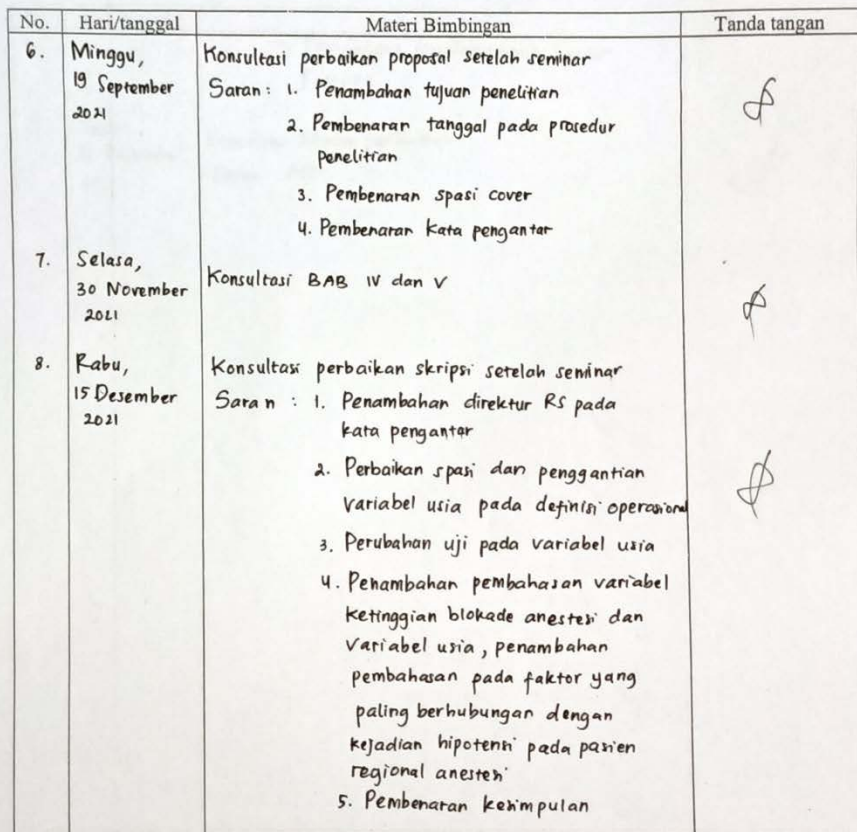 No. Hari/tanggal Materi Bimbingan Tanda tangan
6. Minggu, Konsultasi perbaikan proposal setelah seminar
19 September Saran : 1. Penambahan tujuan penelitian
2021
2. Pembenaran tanggal pada prosedur
penelitian
3. Pembenaran spasi cover
4. Pembenaran kata pengantar
7. Selasa,
30 November Konsultasi BAB IV dan V
2021
8. Rabu, Konsultasi perbaikan skripsi setelah seminar
15 Desember Saran : 1. Penambahan direktur RS pada
2021 kata pengantar
2. Perbaikan spasi dan penggantian
variabel usia pada definisi operasional
3. Perubahan uji pada variabel usia
4. Penambahan pembahasan variabel
ketinggian blokade anestesi dan
variabel usia, penambahan
pembahasan pada faktor yang
paling berhubungan dengan
kejadian hipotensi pada pasien
regional anestesi
5. Pembenaran kesimpulan